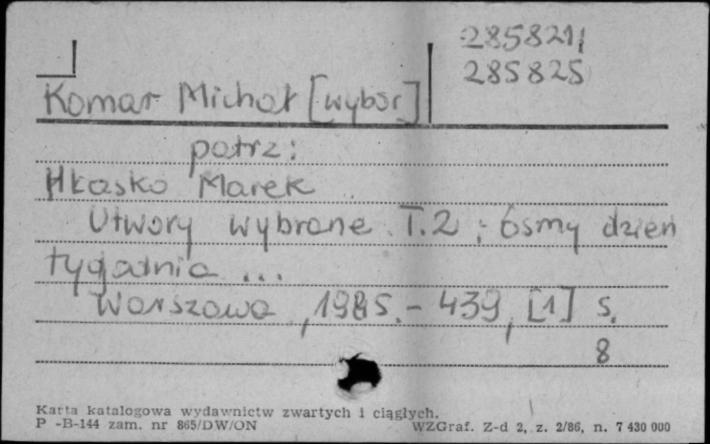 285821;
285825
Komar Michał [wybór]
patrz:
Hłasko Marek
Utwory wybrane. T.2 ; Ósmy dzień
tygodnia ...
Warszawa, 1985. - 439, [1] s.
8
Karta katalogowa wydawnictw zwartych i ciągłych.
P -B-144 zam. nr 865/DW/ON
WZGraf. Z-d 2, z. 2/86, n. 7 430 000